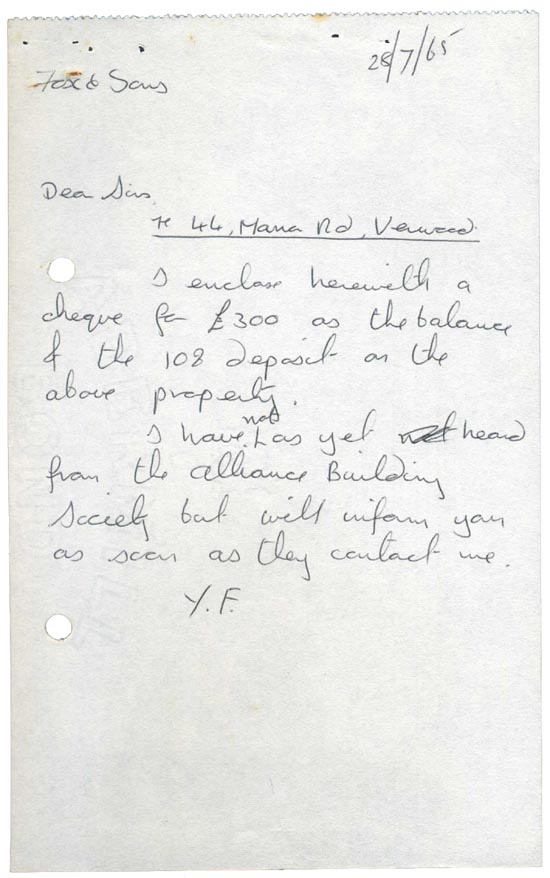 28/7/65
Fox & Sons
Dear Sirs,
44, Manor Rd, Verwood
I enclose herewith a
cheque for £300 as the balance
of the 10% deposit on the
above property.
I have not as yet heard
from the Alliance Building
Society but will inform you
as soon as they contact me.
Y.F.